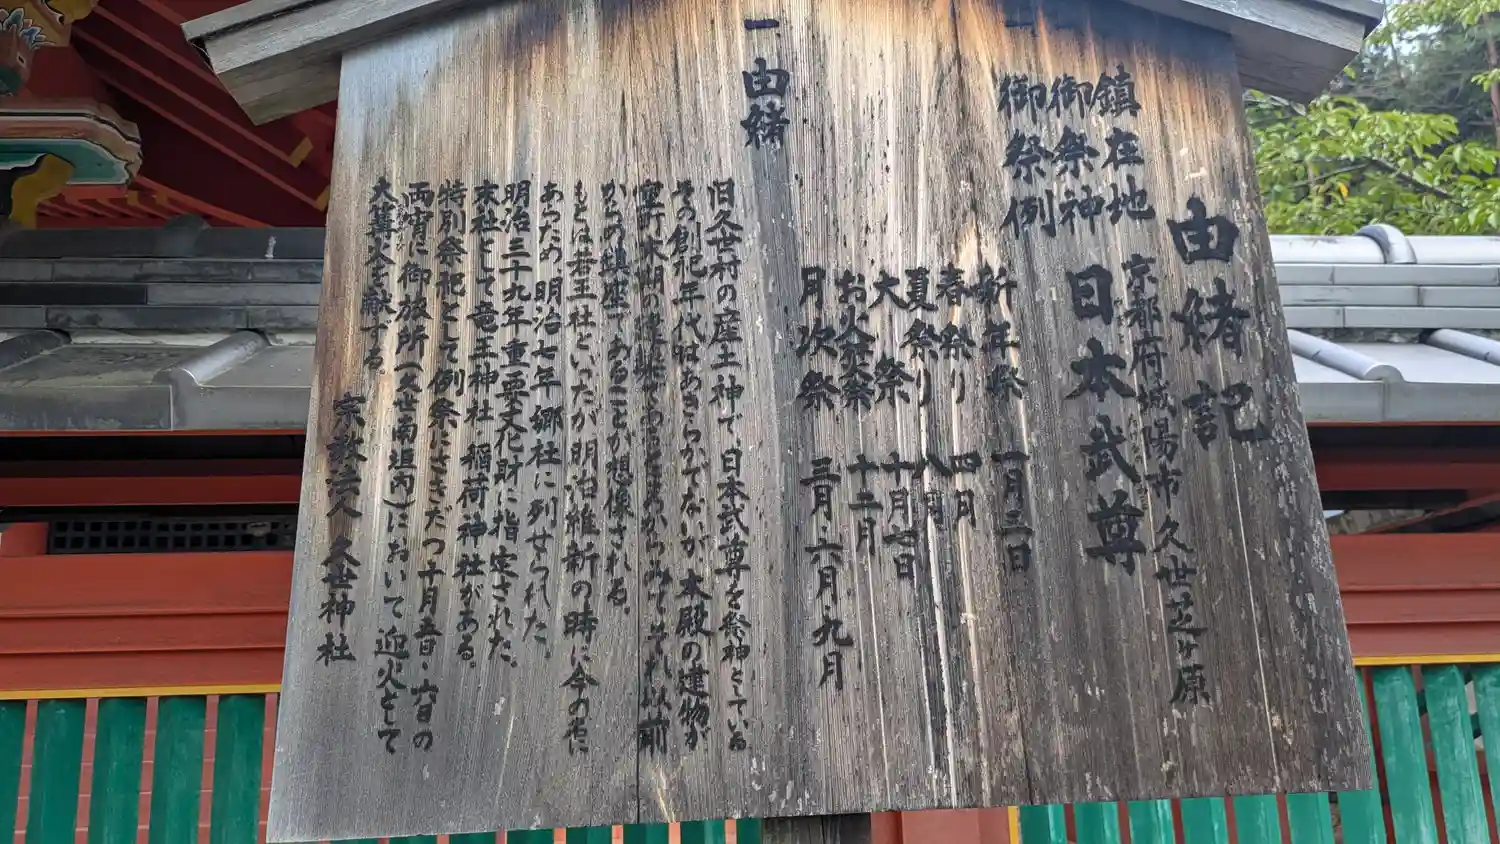 由緒記
鎮在地 京都府城陽市久世芝ヶ原
御祭神 日本武尊
一 御祭例
新年祭 一月三日
春祭り 四月
夏祭り 八月
大祭 十月七日
お火焚祭 十二月
月次祭 三月・六月・九月
一 由緒
旧久世村の産土神で、日本武尊を祭神としている
その創祀年代はあきらかでないが、本殿の建物が
室町末期の建築であるところからみて、それ以前
からの鎮座であることが想像される。
もとは若王社といったが明治維新の時に今の名に
あらため、明治七年郷社に列せられた。
明治三十九年重要文化財に指定された。
末社として竜王神社、稲荷神社がある。
特別祭祀として例祭にさきだつ十月五日・六日の
両宵に御旅所（久世南垣内）において迎火として
大篝火を献ずる。
宗教法人 久世神社